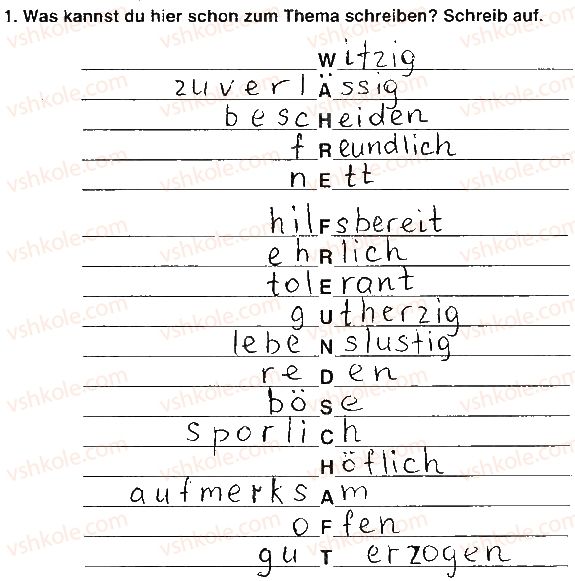 1. Was kannst du hier schon zum Thema schreiben? Schreib auf.
Witzig
zuverlÄssig
bescHeiden
fReundlich
nEtt
hilFsbereit
ehRlich
tolErant
gUtherzig
lebeNslustig
reDen
böSe
sporliCh
Höflich
aufmerksAm
oFfen
guT erzogen